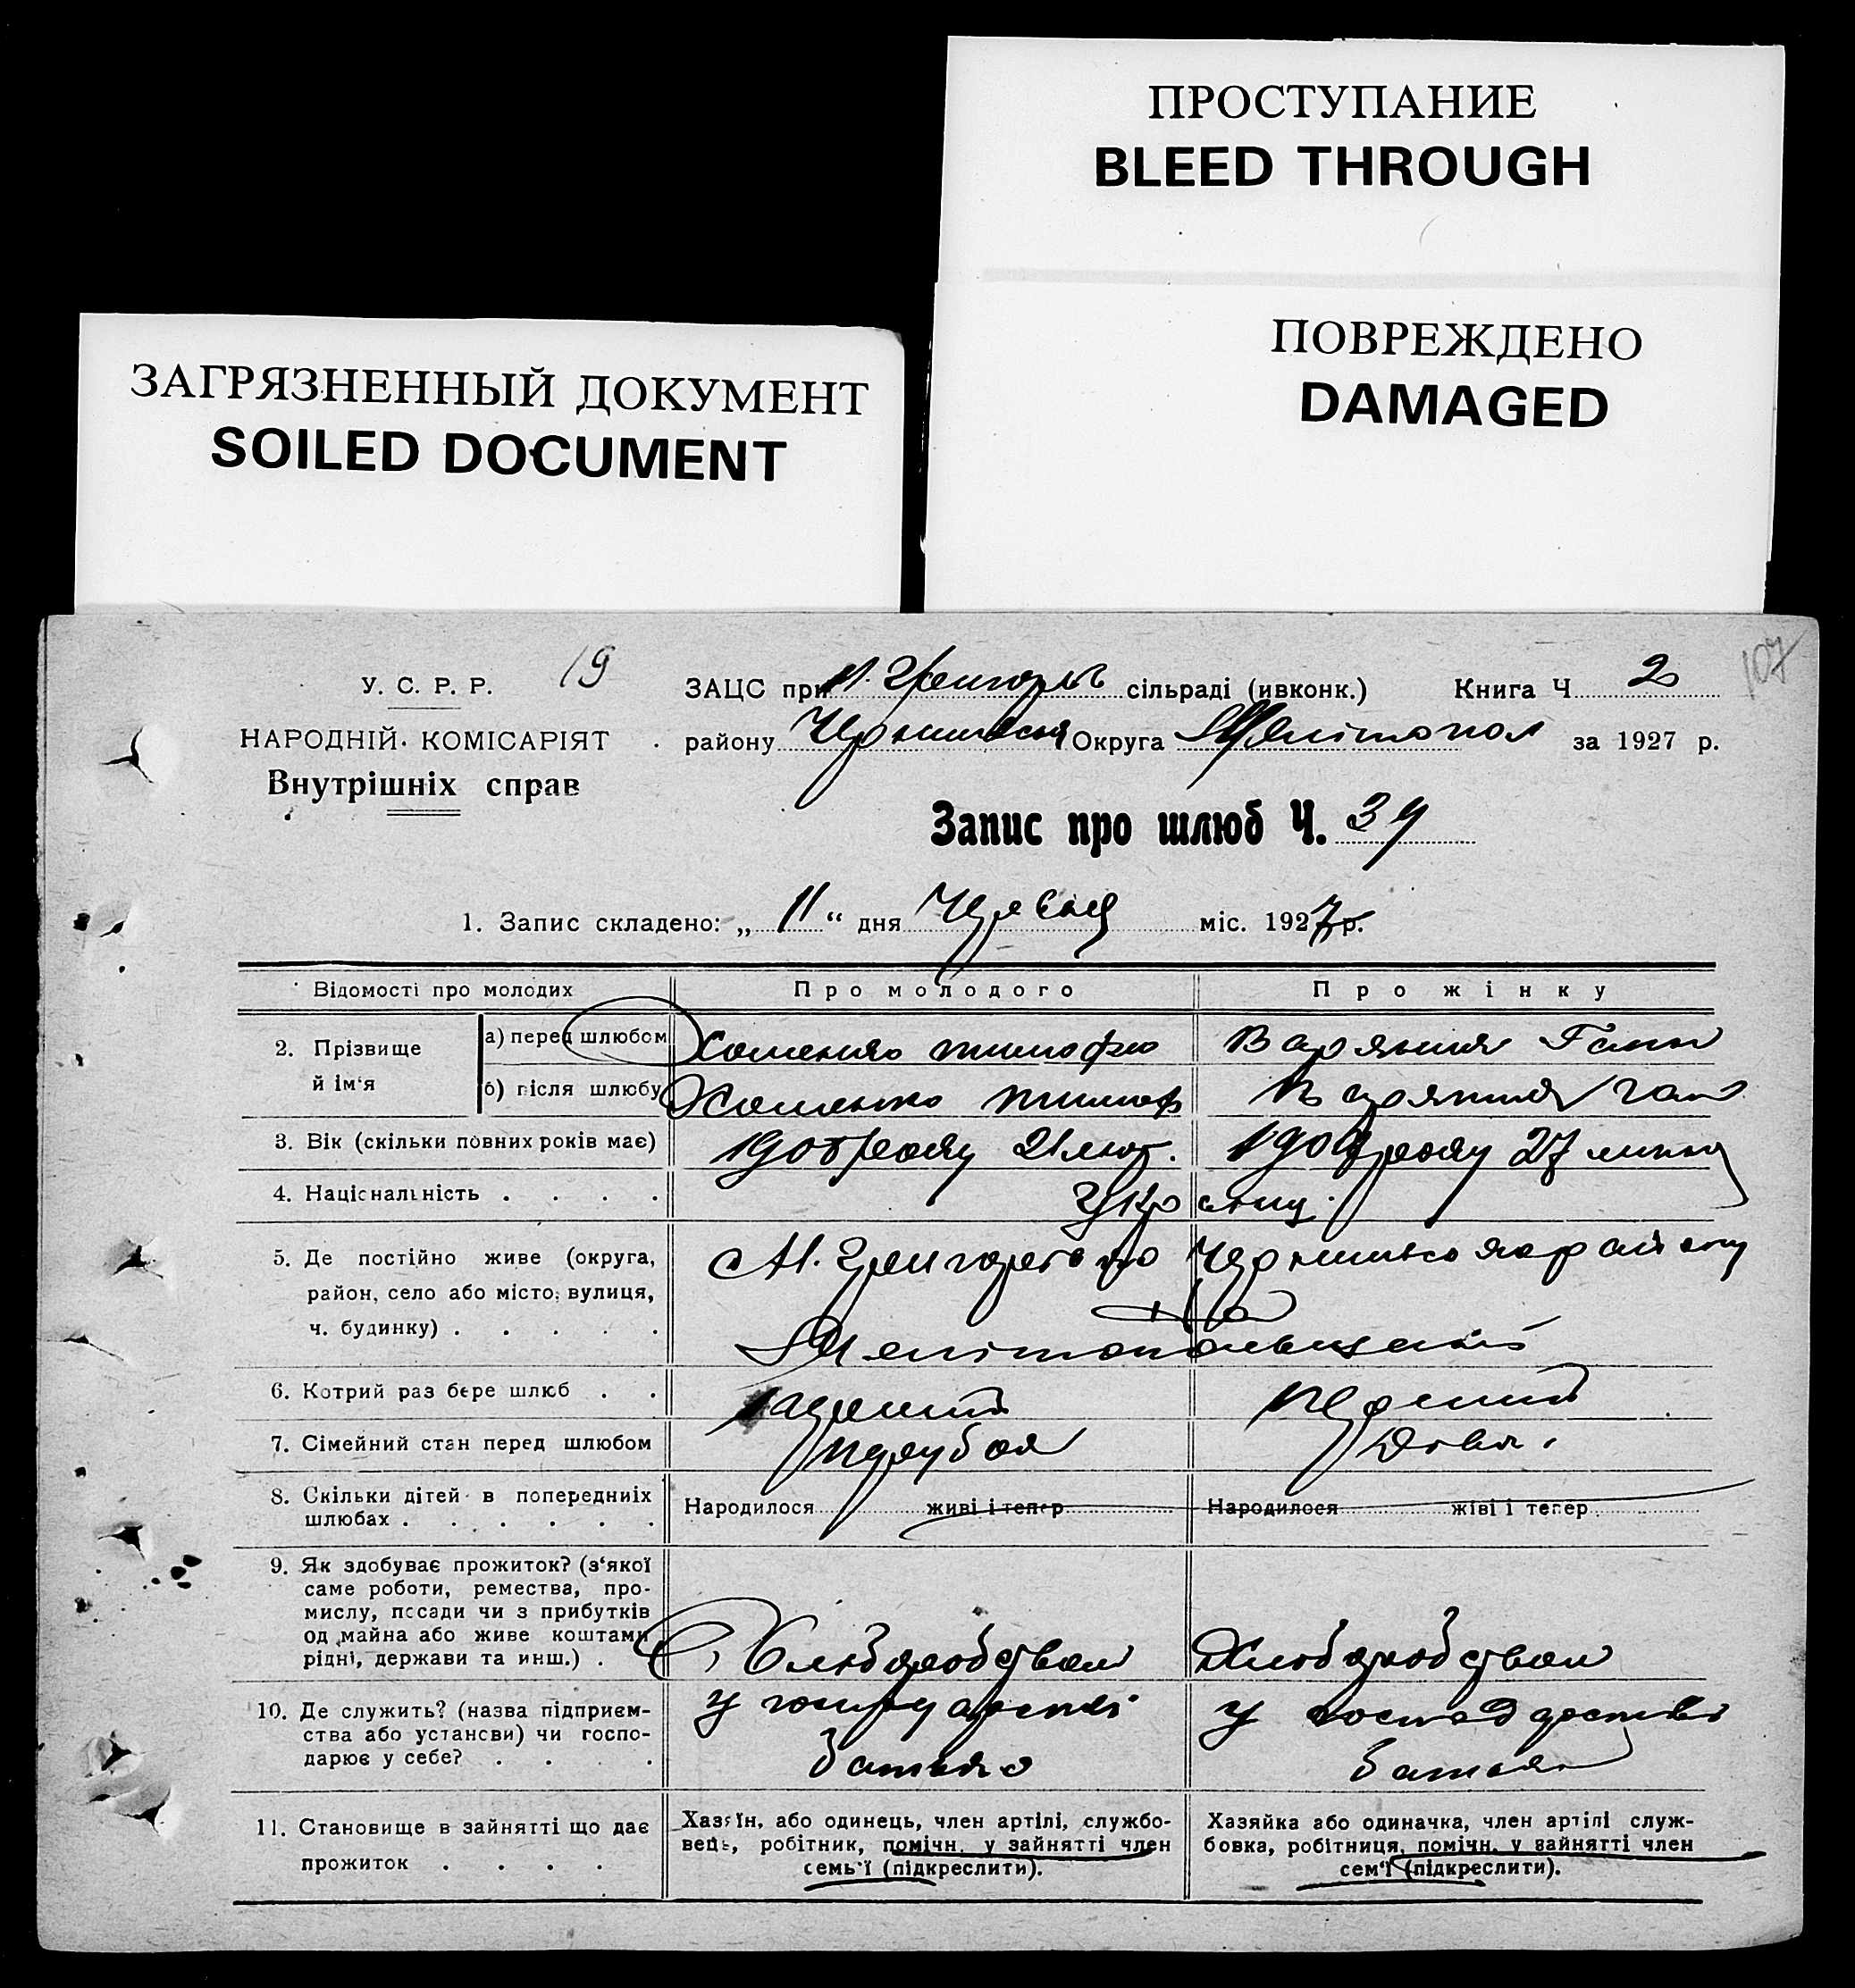 ПРОСТУПАНИЕ
BLEED THROUGH
ПОВРЕЖДЕНО
DAMAGED
ЗАГРЯЗНЕННЫЙ ДОКУМЕНТ
SOILED DOCUMENT
107
У. С. Р. Р.
19
НАРОДНІЙ КОМІСАРІЯТ
Внутрішніх справ
ЗАЦС при сільраді (ивконк.) Книга Ч 2
району Округа Мелітопол за 1927 р.
Запис про шлюб Ч. 39
1. Запис складено: „ 11 “ дня міс. 1927 р.
Відомості про молодих Про молодого Про жінку
2. Прізвище й ім'я
а) перед шлюбом Хоменко Ганн
б) після шлюбу Хоменко Тимоф
3. Вік (скільки повних років має) 1905 року 21 лют. року 27 липня
4. Національність . . . .
5. Де постійно живе (округа,
район, село або місто, вулиця,
ч. будинку) . . . . .
6. Котрий раз бере шлюб . . перший перший
7. Сімейний стан перед шлюбом парубок
8. Скільки дітей в попередниіх
шлюбах . . . . . .
Народилося живі і тепер Народилося жіві і тепер
9. Як здобуває прожиток? (з'якої
саме роботи, ремества, про-
мислу, посади чи з прибутків
од майна або живе коштами
рідні, держави та инш.) .
Хліборобством Хліборобством
10. Де служить? (назва підприєм-
ства або установи) чи госпо-
дарює у себе? . . . .
у у господарстві
батька батька
11. Становище в зайнятті що дає
прожиток . . . .
Хазяїн, або одинець, член артілі, службо-
вець, робітник, помічн. у зайнятті член
семь'ї (підкреслити).
Хазяйка або одиначка, член артілі служ-
бовка, робітниця, помічн. у зайнятті член
сем'ї (підкреслити).